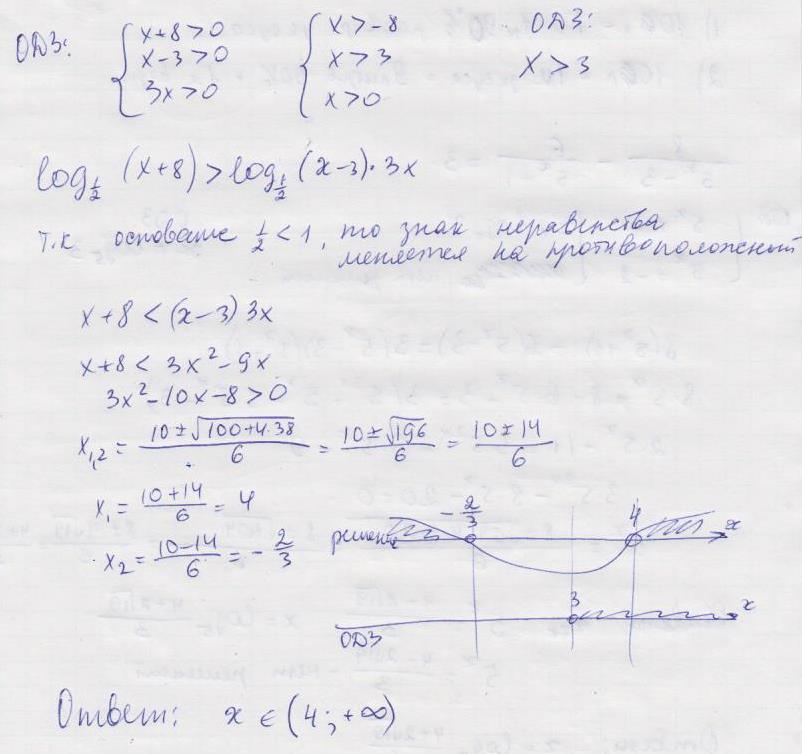 ОДЗ: { x+8>0 { x>-8 ОДЗ:
x-3>0 x>3 x>3
3x>0 x>0
log_{1/2} (x+8) > log_{1/2} (x-3)·3x
т.к основание 1/2 < 1, то знак неравенства
меняется на противоположный
x+8 < (x-3) 3x
x+8 < 3x²-9x
3x²-10x-8>0
x_{1,2} = (10±√(100+4·38))/6 = (10±√196)/6 = (10±14)/6
x₁ = (10+14)/6 = 4
x₂ = (10-14)/6 = -2/3
-2/3 4
решение x
3 x
ОДЗ
Ответ: x ∈ (4; +∞)